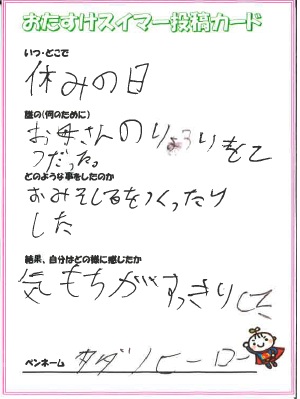 おたすけスイマー投稿カード
いつ・どこで
休みの日
誰の(何のために)
お母さんのりょうりをて
つだった。
どのような事をしたのか
おみそしるをつくったり
した
結果、自分はどの様に感じたか
気もちがすっきりした
ペンネーム
タダノヒーロー